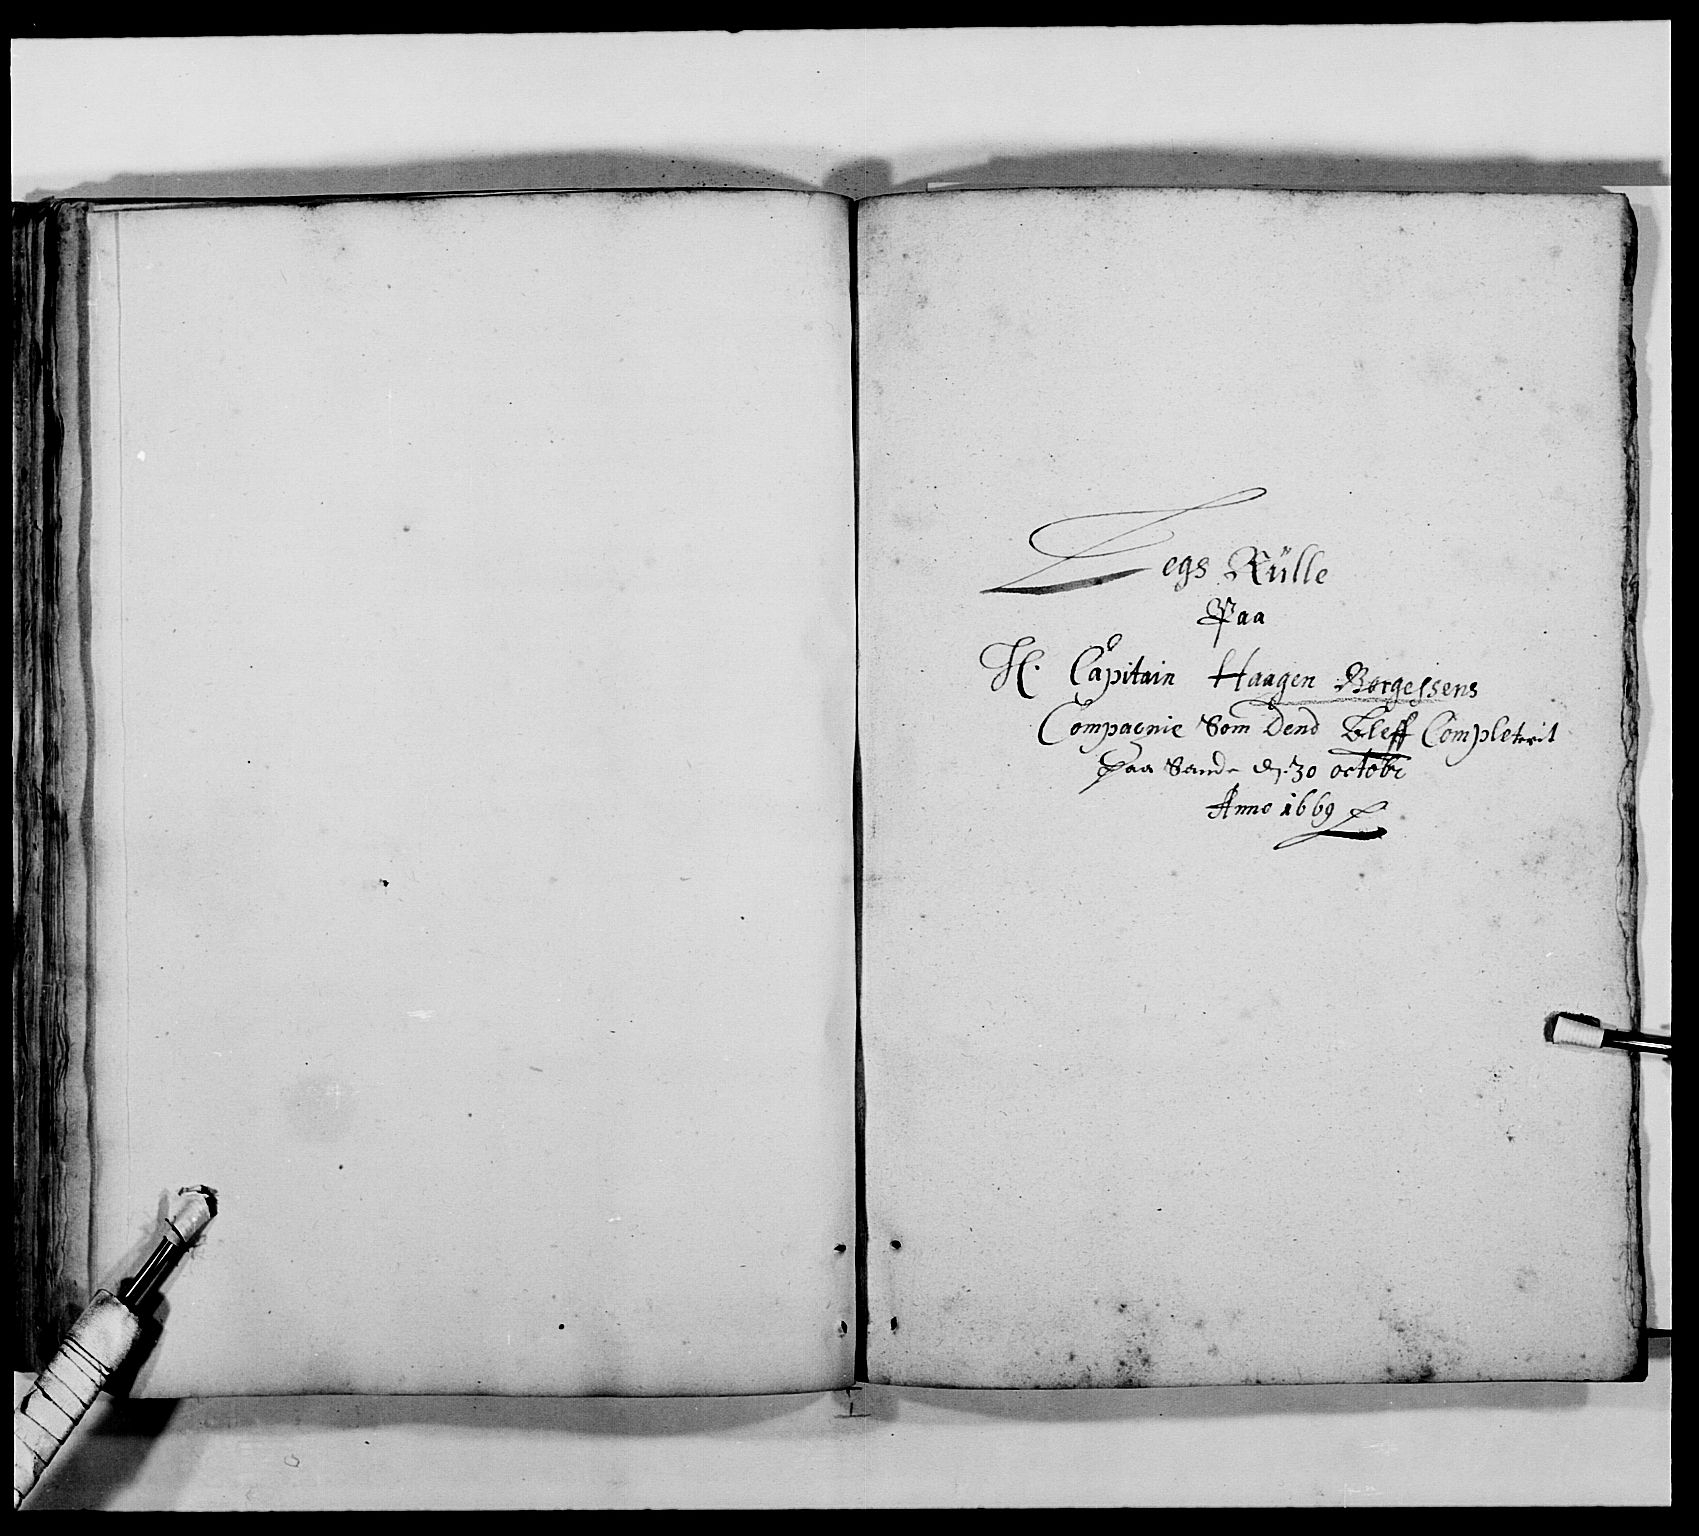 Legs Rülle
Paa
H. Capitain Haagen Børgessens
Compagnie Som Dend bleff Completerit
paa Sande d. 30 octobr
Anno 1669